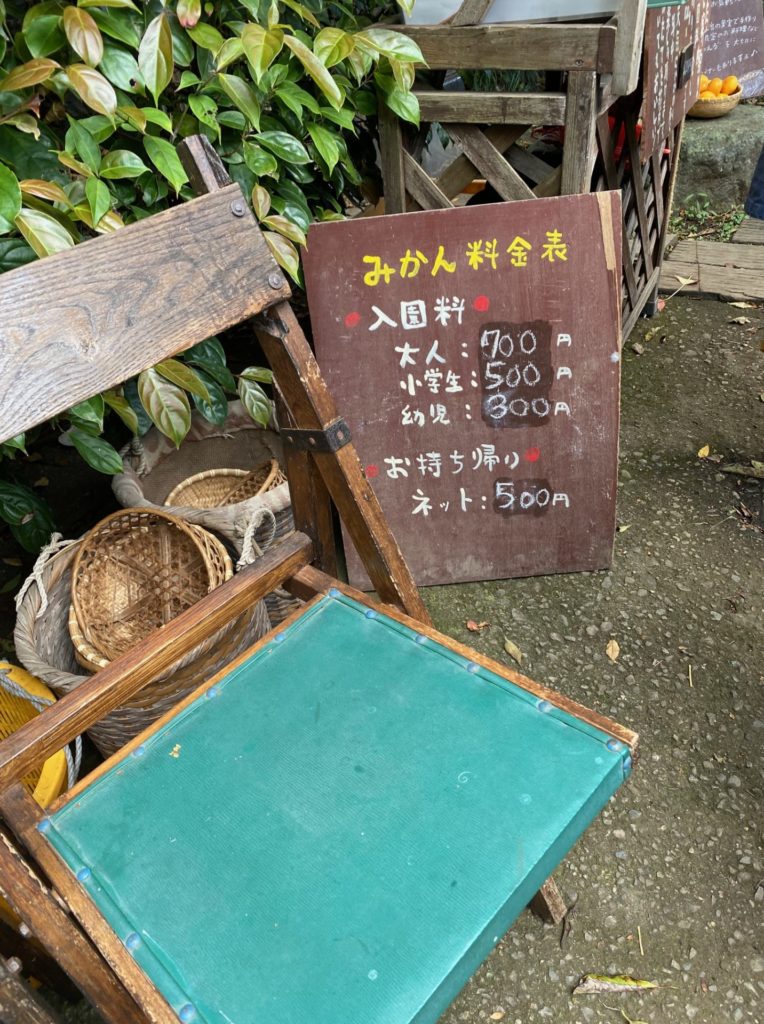 みかん料金表
入園料
大人：700円
小学生：500円
幼児：300円
お持ち帰り
ネット：500円